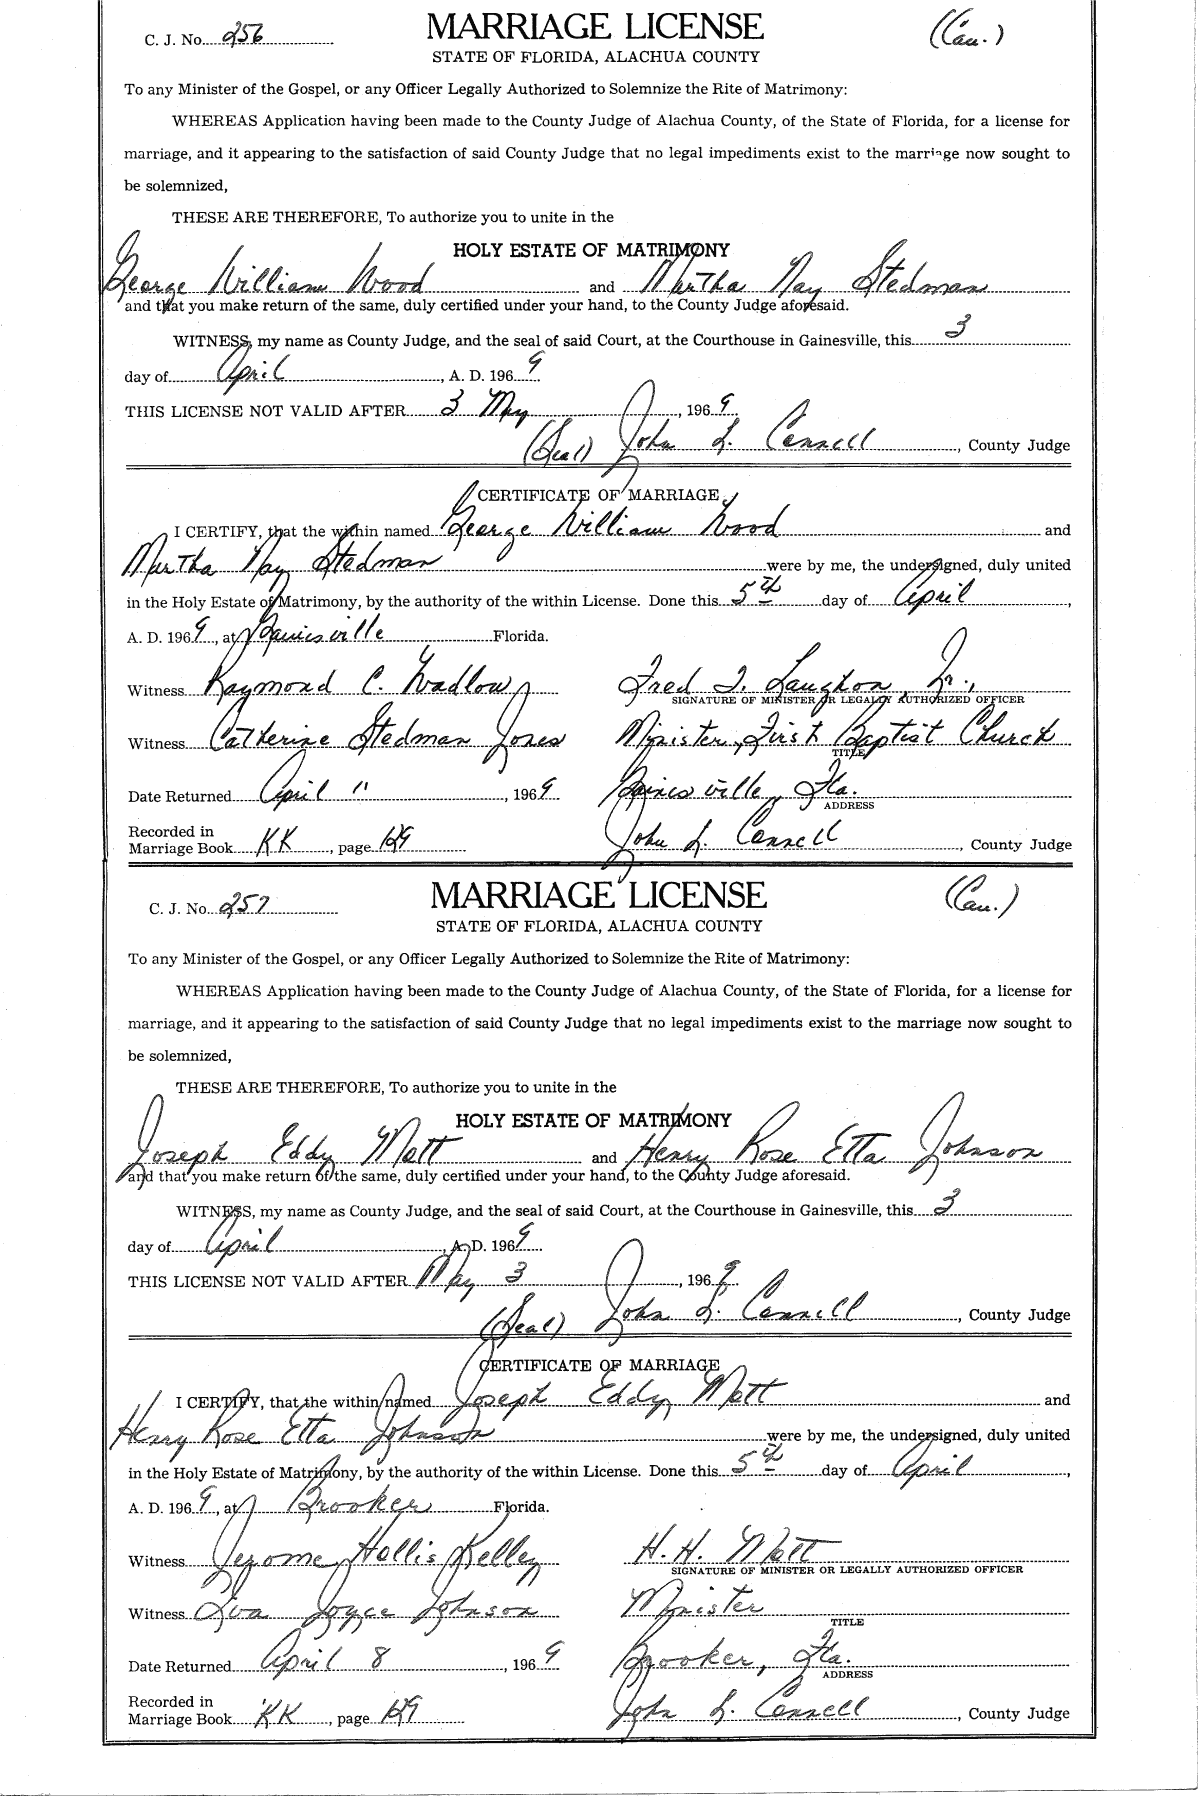 C. J. No. 256 MARRIAGE LICENSE (Cau.)
STATE OF FLORIDA, ALACHUA COUNTY
To any Minister of the Gospel, or any Officer Legally Authorized to Solemnize the Rite of Matrimony:
WHEREAS Application having been made to the County Judge of Alachua County, of the State of Florida, for a license for
marriage, and it appearing to the satisfaction of said County Judge that no legal impediments exist to the marriage now sought to
be solemnized,
THESE ARE THEREFORE, To authorize you to unite in the
HOLY ESTATE OF MATRIMONY
George William Wood and Martha Nay Stedman
and that you make return of the same, duly certified under your hand, to the County Judge aforesaid.
WITNESS, my name as County Judge, and the seal of said Court, at the Courthouse in Gainesville, this 3
day of April, A. D. 1969
THIS LICENSE NOT VALID AFTER 3 May, 1969
(Seal) John L. Connell, County Judge
CERTIFICATE OF MARRIAGE
I CERTIFY, that the within named George William Wood and
Martha Nay Stedman were by me, the undersigned, duly united
in the Holy Estate of Matrimony, by the authority of the within License. Done this 5th day of April,
A. D. 1969, at Gainesville Florida.
Witness Raymond C. Wadlow Fred T. Laughon, Jr.,
SIGNATURE OF MINISTER OR LEGALLY AUTHORIZED OFFICER
Witness Catherine Stedman Jones Minister, First Baptist Church
TITLE
Date Returned April 11, 1969 Gainesville, Fla.
ADDRESS
Recorded in
Marriage Book KK, page 129 John L. Connell, County Judge
C. J. No. 257 MARRIAGE LICENSE (Cau.)
STATE OF FLORIDA, ALACHUA COUNTY
To any Minister of the Gospel, or any Officer Legally Authorized to Solemnize the Rite of Matrimony:
WHEREAS Application having been made to the County Judge of Alachua County, of the State of Florida, for a license for
marriage, and it appearing to the satisfaction of said County Judge that no legal impediments exist to the marriage now sought to
be solemnized,
THESE ARE THEREFORE, To authorize you to unite in the
HOLY ESTATE OF MATRIMONY
Joseph Eddy Mott and Henry Rose Etta Johnson
and that you make return of the same, duly certified under your hand, to the County Judge aforesaid.
WITNESS, my name as County Judge, and the seal of said Court, at the Courthouse in Gainesville, this 3
day of April, A. D. 1969
THIS LICENSE NOT VALID AFTER May 3, 1969
(Seal) John L. Connell, County Judge
CERTIFICATE OF MARRIAGE
I CERTIFY, that the within named Joseph Eddy Mott and
Henry Rose Etta Johnson were by me, the undersigned, duly united
in the Holy Estate of Matrimony, by the authority of the within License. Done this 5th day of April,
A. D. 1969, at Brooker Florida.
Witness Jerome Hollis Kelley H. H. Mott
SIGNATURE OF MINISTER OR LEGALLY AUTHORIZED OFFICER
Witness Iva Joyce Johnson Minister
TITLE
Date Returned April 8, 1969 Brooker, Fla.
ADDRESS
Recorded in
Marriage Book KK, page 129 John L. Connell, County Judge